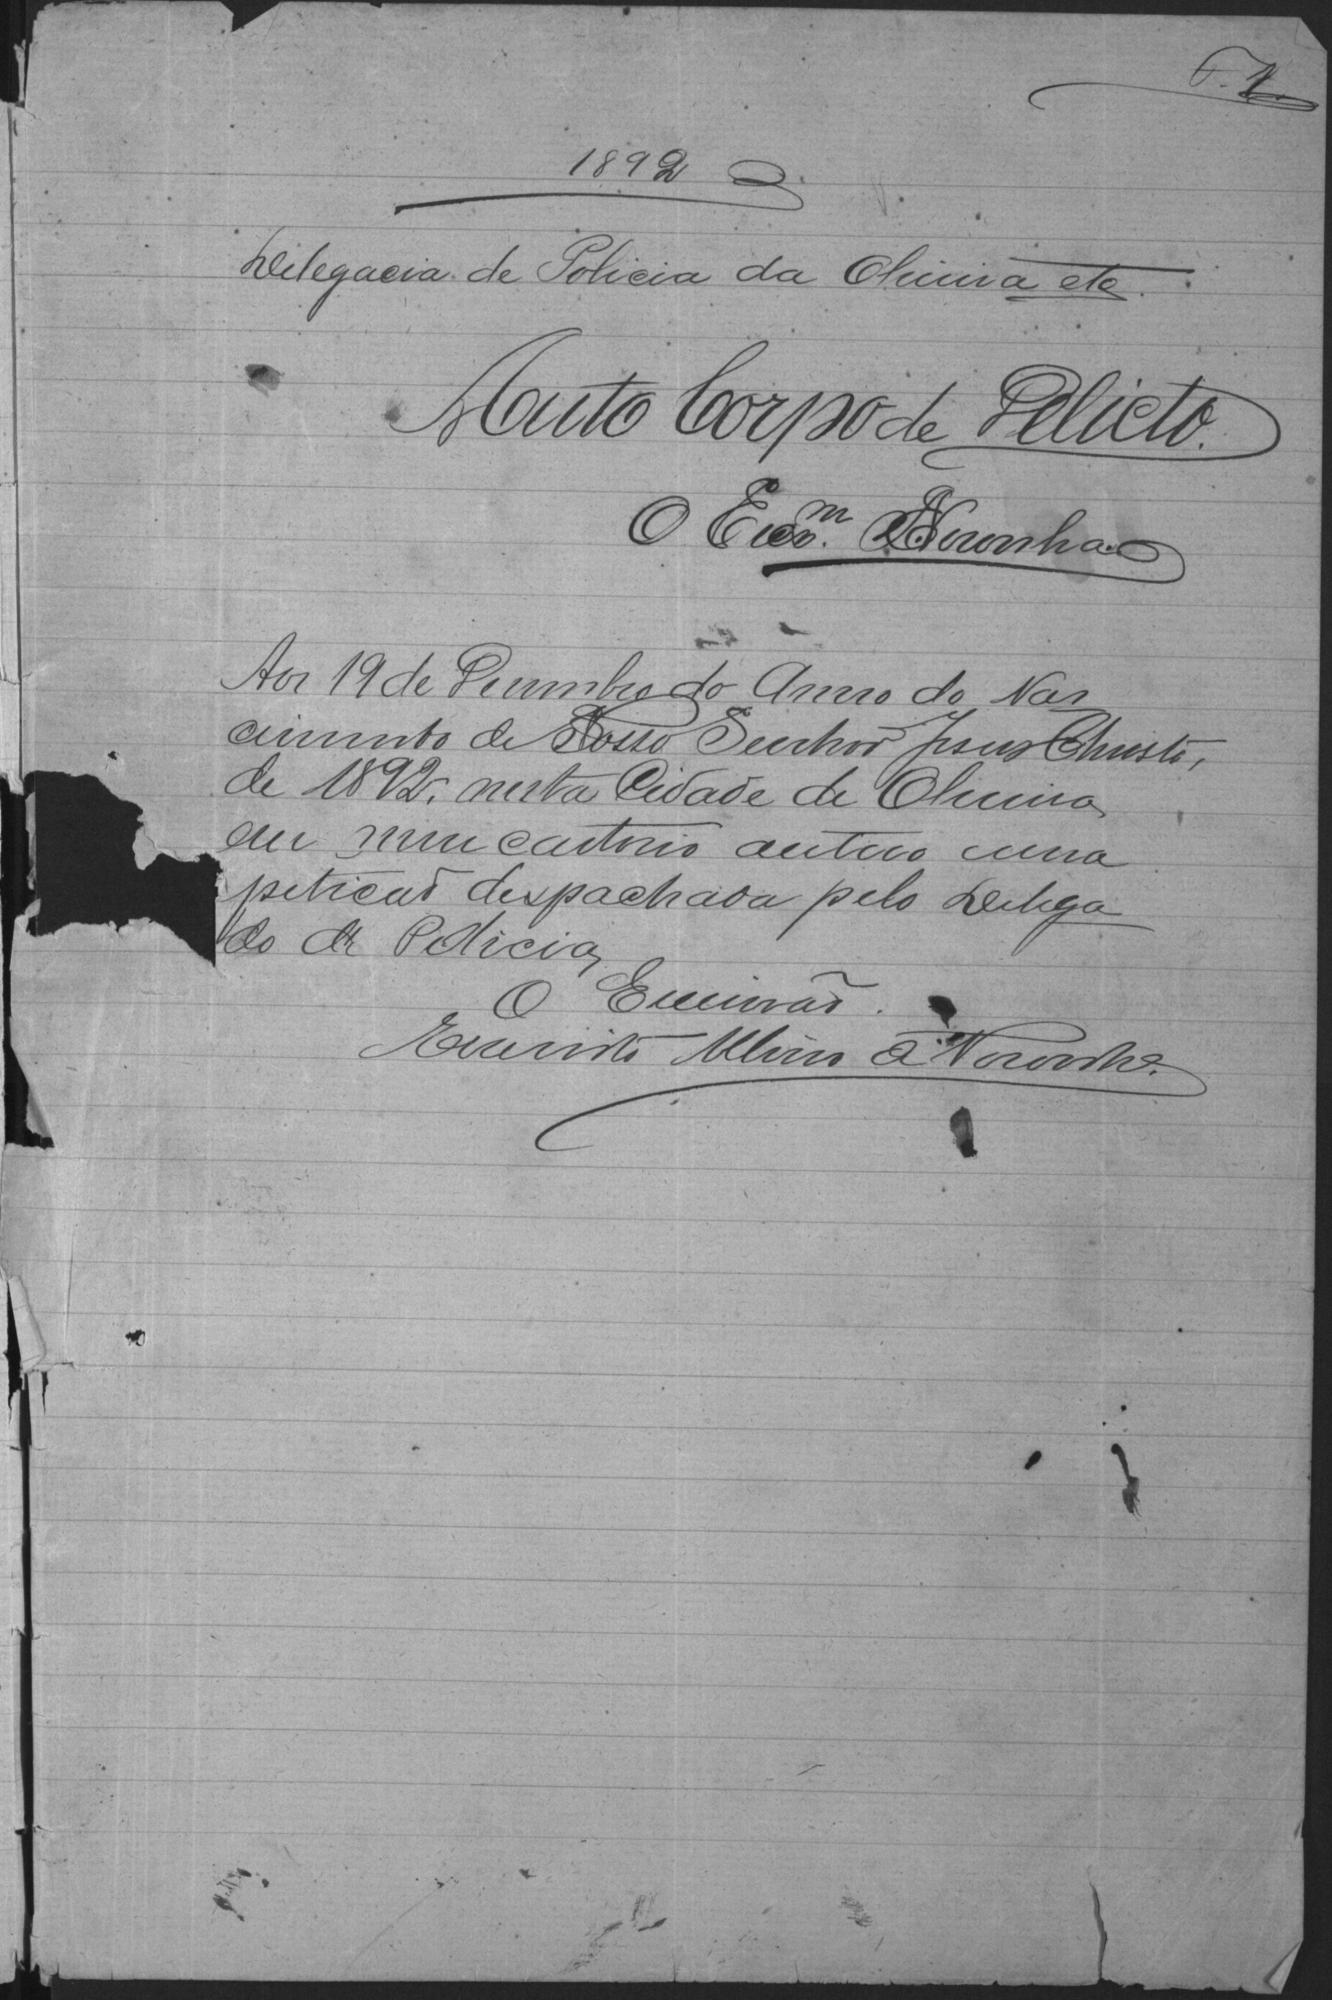 F. 1.
1892
Delegacia de Policia da Oliveira etc.
Auto Corpo de Delicto.
O Escm. Noronha
Aos 19 de Dezembro do Anno do Nas
cimento de Nosso Senhor Jesus Christo,
de 1892, nesta Cidade de Oliveira
em meu cartorio autuo uma
petição despachada pelo Delega
do de Policia,
O Escrivão.
Evaristo Albino de Noronha.